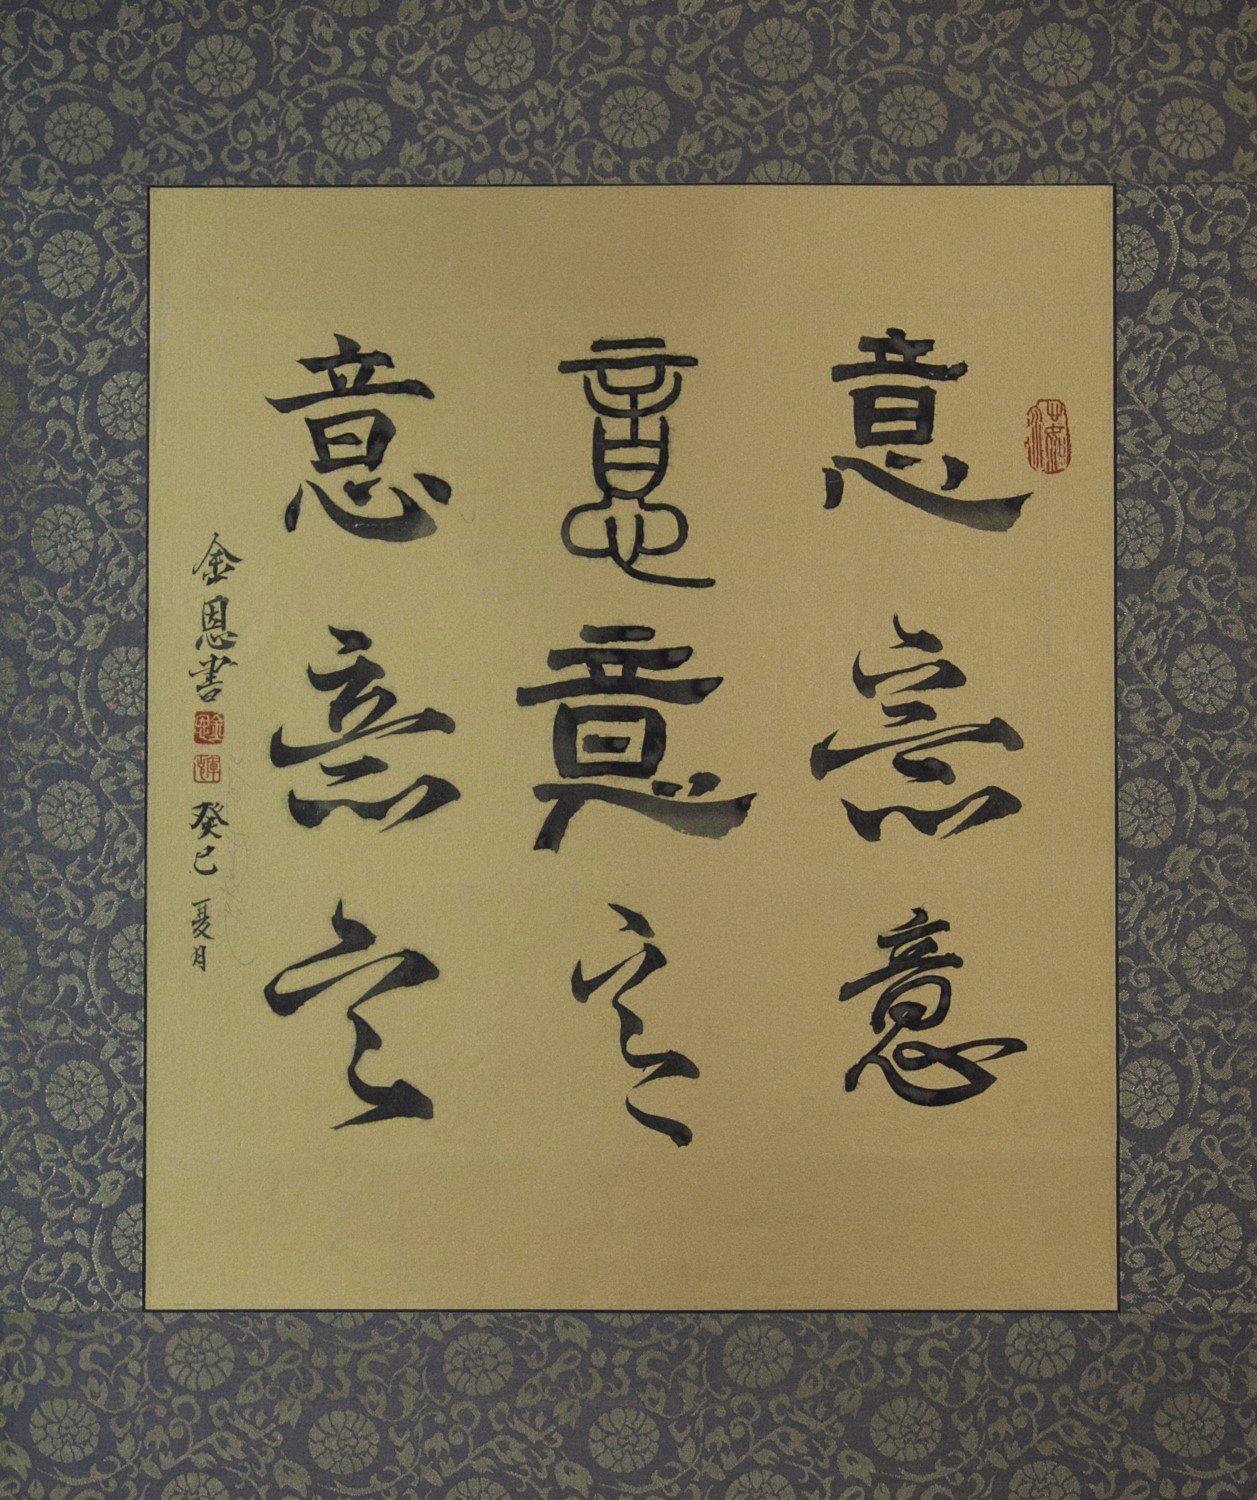 意意意
意意意
意意意
金恩書
癸巳夏月